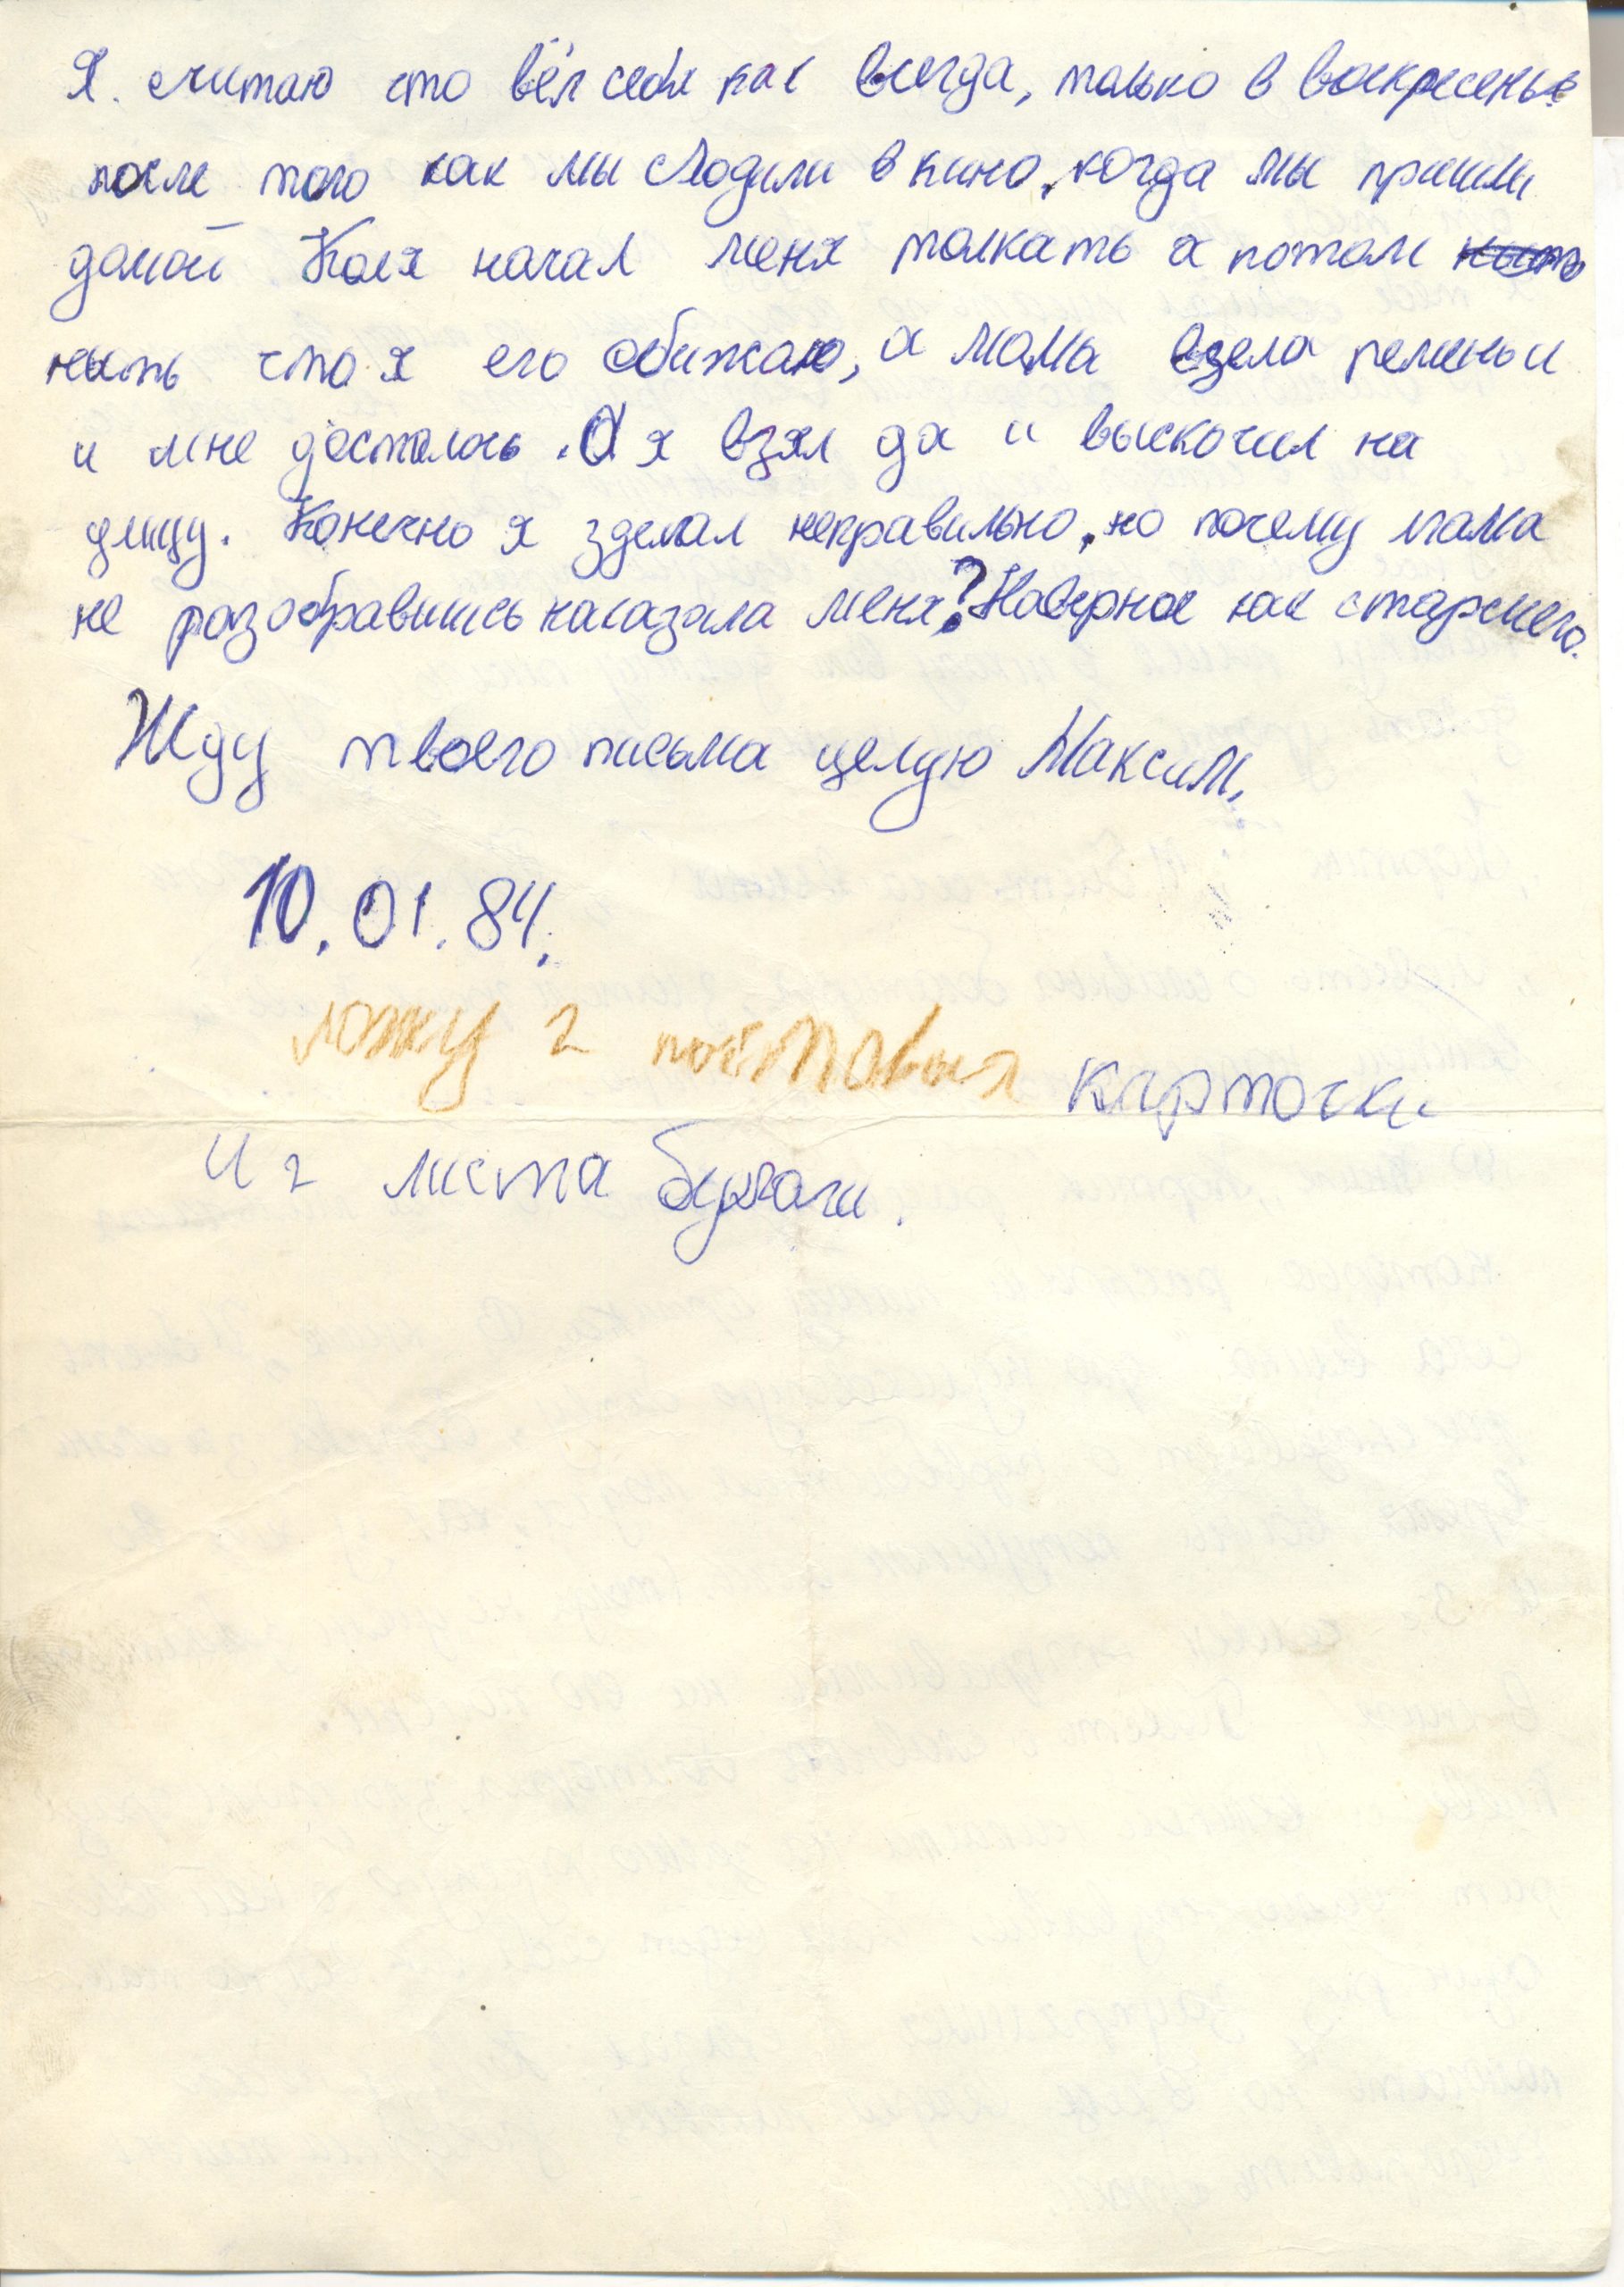 Я. считаю что вёл себя как всегда, только в воскресенье
после того как мы сходили в кино, когда мы пришли
домой Коля начал меня толкать а потом
ныть что я его обижаю, а мама взела ремень и
и мне досталось. А я взял да и выскочил на
улицу. Конечно я зделал неправильно, но почему мама
не разобравшись наказала меня? Наверное как старшего.
Жду твоего письма целую Максим.
10.01.84.
ложу 2 почтовыя карточки
и 2 листа бумаги.